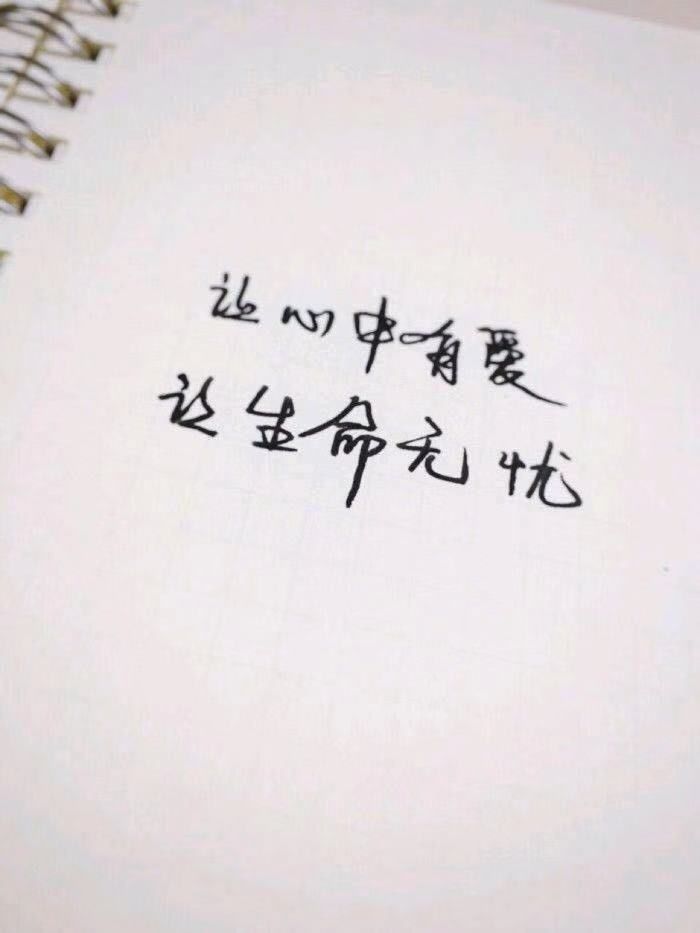 让心中有愛
让生命无忧